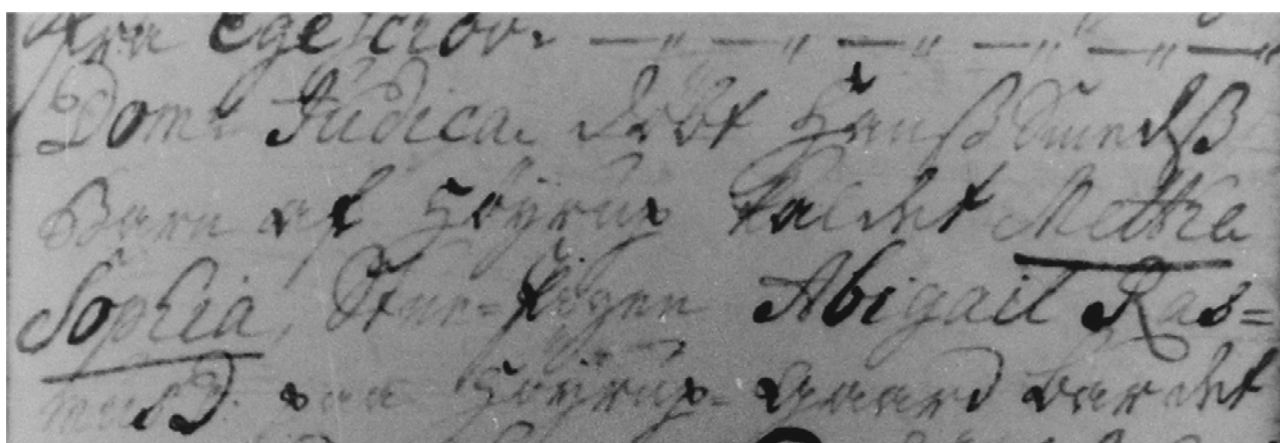 fra Egeschov. —„—„—„—„—„—
Dom: Judica. døbt Hanß Smedß
Barn af Høyrup kaldet Mettea
Sophia, Stue-Pigen Abigail Ras=
musd: paa Høyrup-Gaard bar det